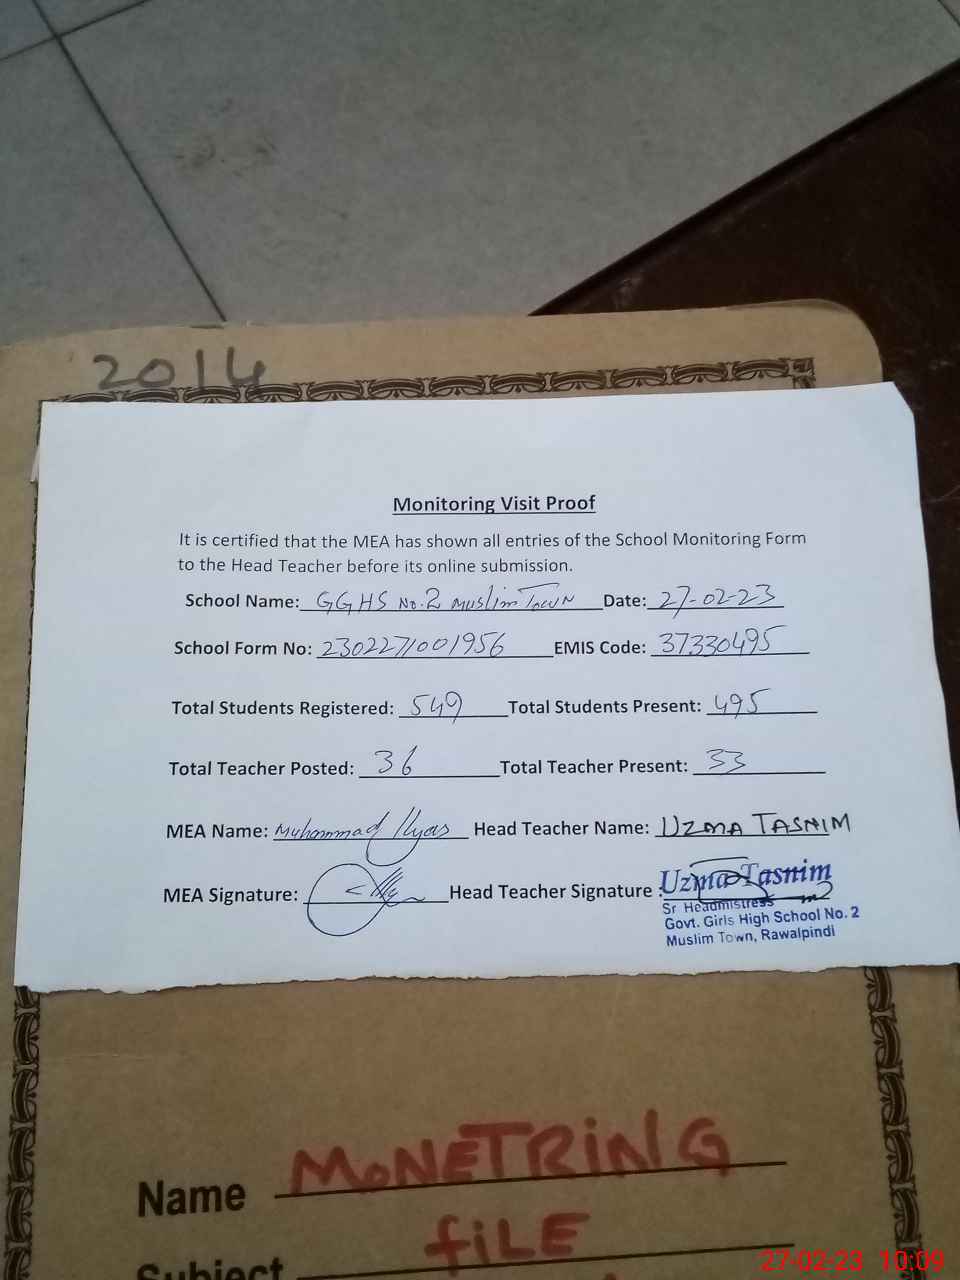 2014
Monitoring Visit Proof
It is certified that the MEA has shown all entries of the School Monitoring Form
to the Head Teacher before its online submission.
School Name: GGHS No.2 Muslim Town Date: 27-02-23
School Form No: 2302271001956 EMIS Code: 37330495
Total Students Registered: 549 Total Students Present: 495
Total Teacher Posted: 36 Total Teacher Present: 33
MEA Name: Muhammad Ilyas Head Teacher Name: UZMA TASNIM
MEA Signature: Head Teacher Signature :
Uzma Tasnim
Sr Headmistress
Govt. Girls High School No. 2
Muslim Town, Rawalpindi
Name MONETRiNG
fiLE
Subject
27-02-23 10:09